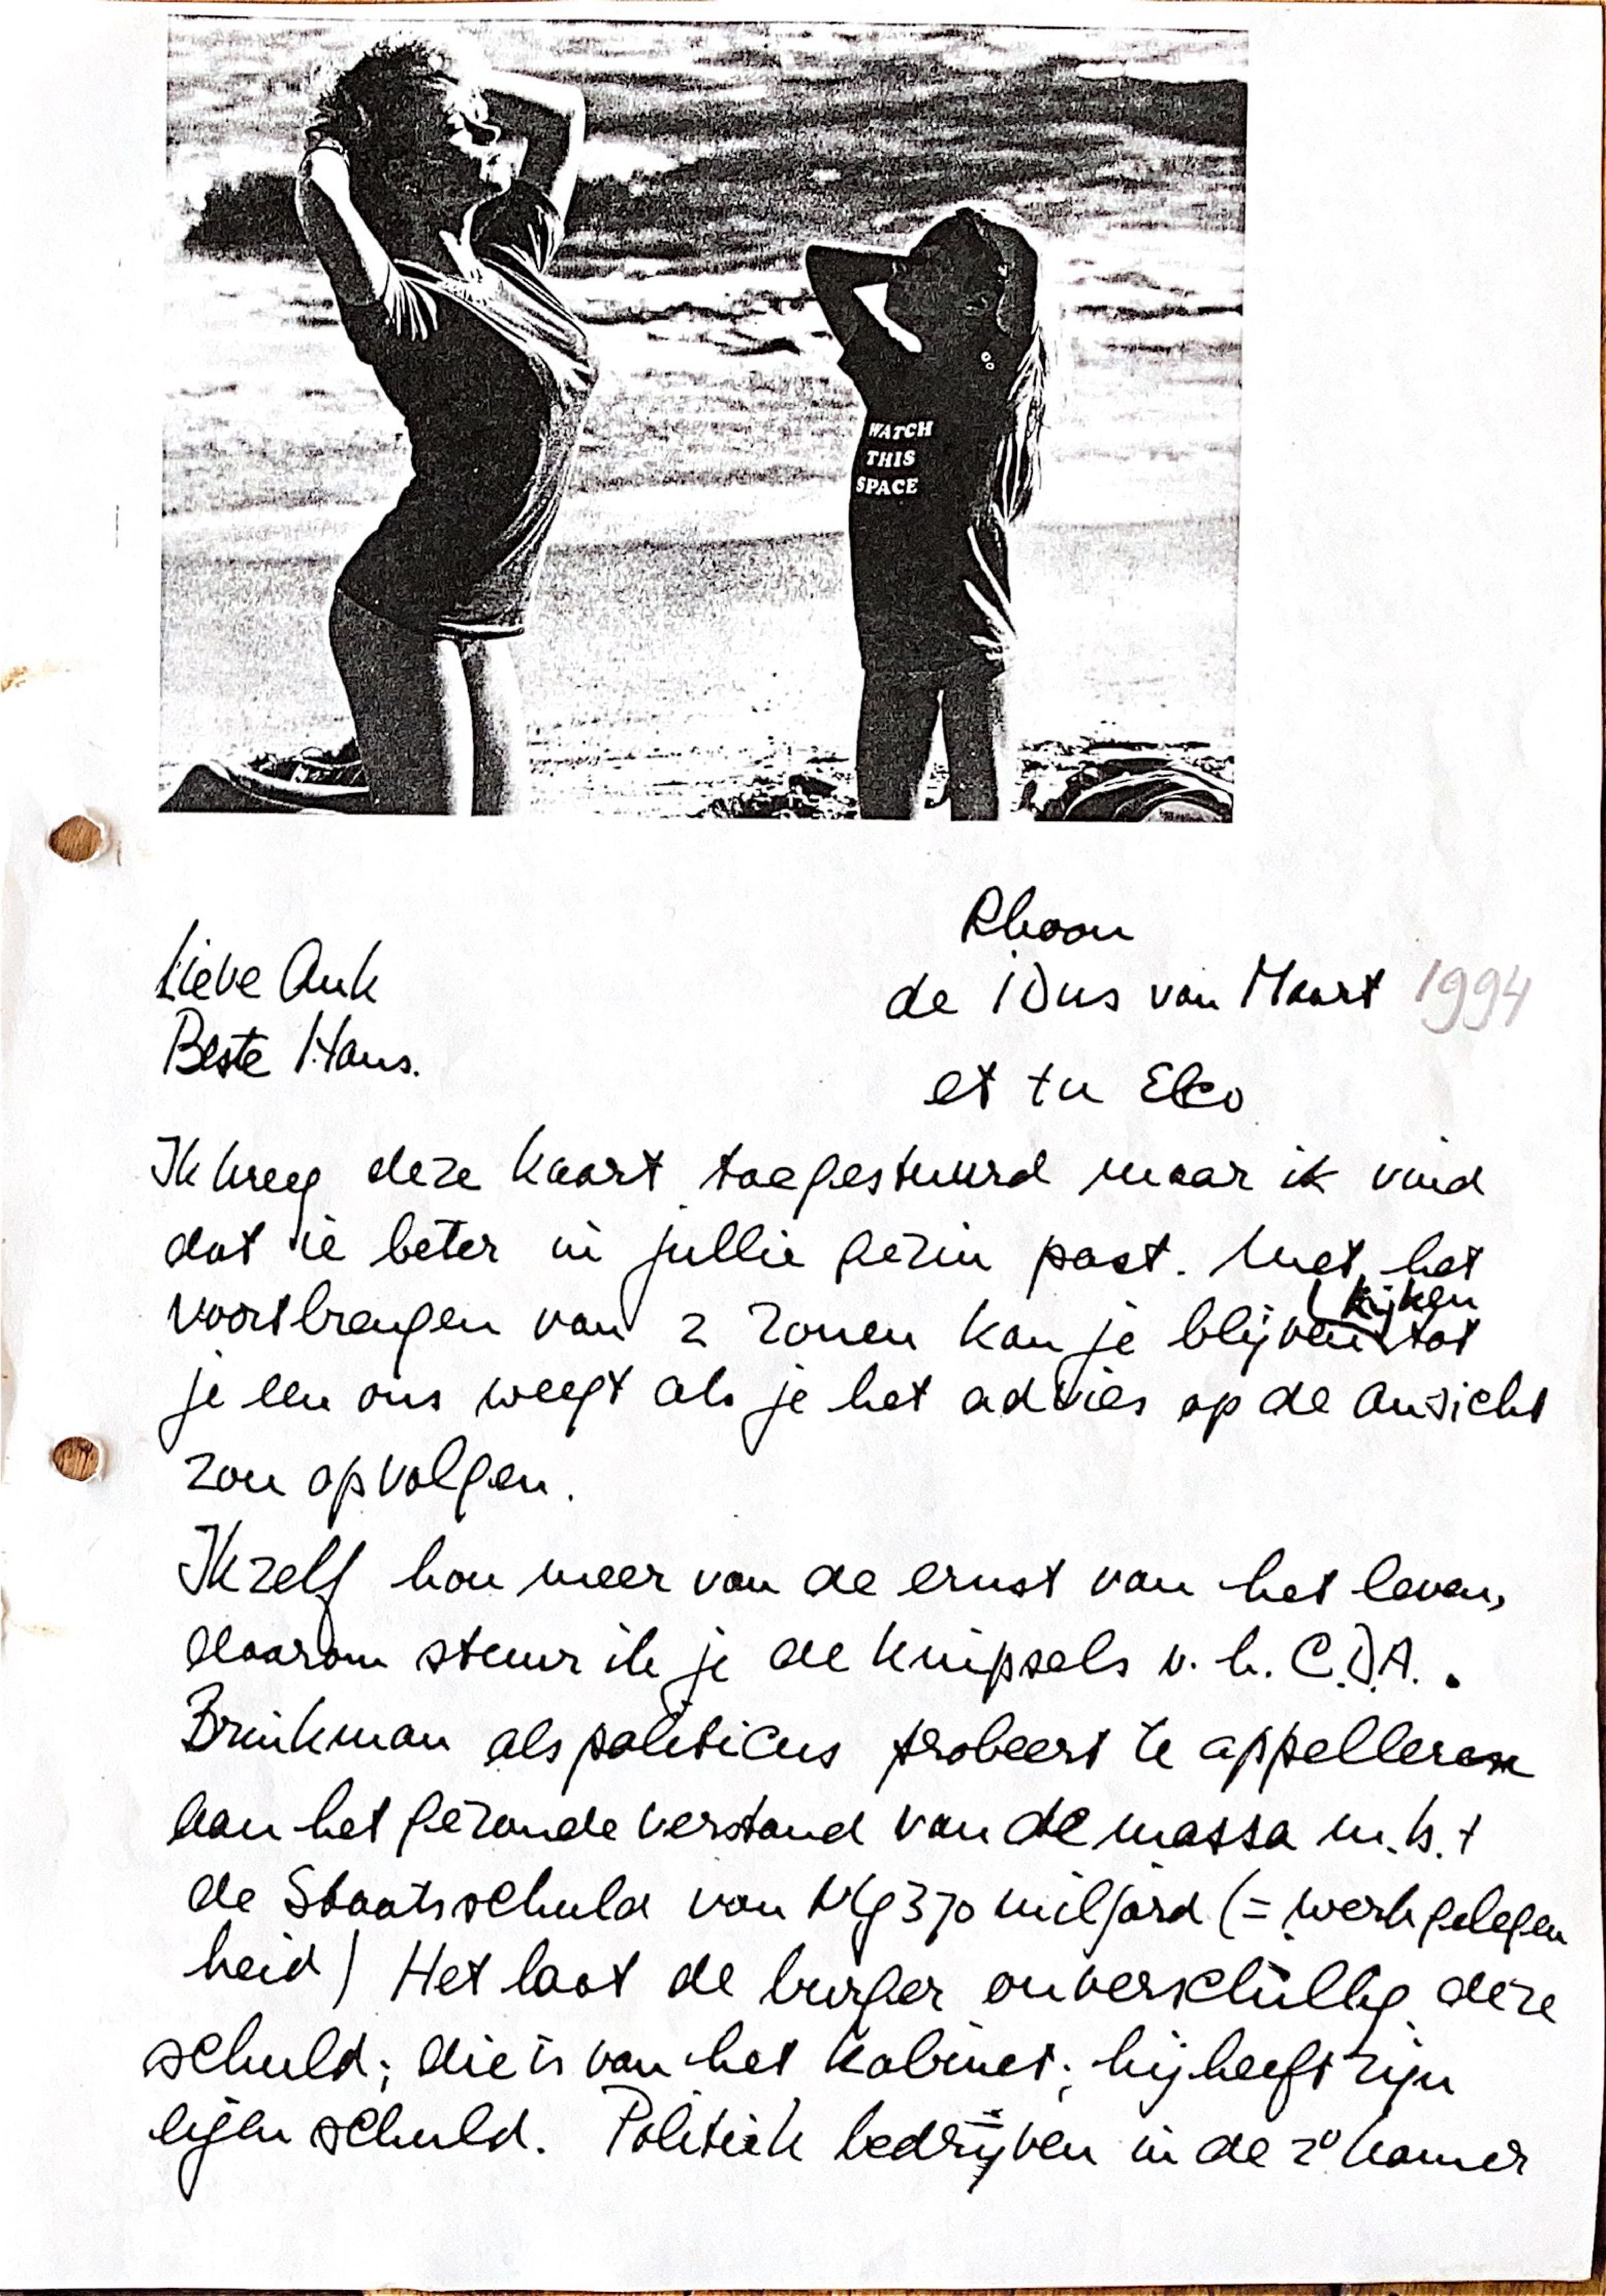 WATCH
THIS
SPACE
Rhoon
Lieve Ank
de iDus van Maart 1994
Beste Hans.
et tu Elco
Ik kreeg deze kaart toegestuurd maar ik vind
dat ie beter in jullie gezin past. Met het
voortbrengen van 2 zonen kan je blijven kijken tot
je een ons weegt als je het advies op de ansicht
zou opvolgen.
Ikzelf hou meer van de ernst van het leven,
daarom stuur ik je de knipsels v. h. C.D.A..
Brinkman als politicus probeert te appelleren
aan het gezonde verstand van de massa m.b.t
de Staatsschuld van Mg 370 miljard (= werkgelegen
heid) Het laat de burger onverschillig deze
schuld; die is van het kabinet; hij heeft zijn
eigen schuld. Politiek bedrijven in de 2e kamer